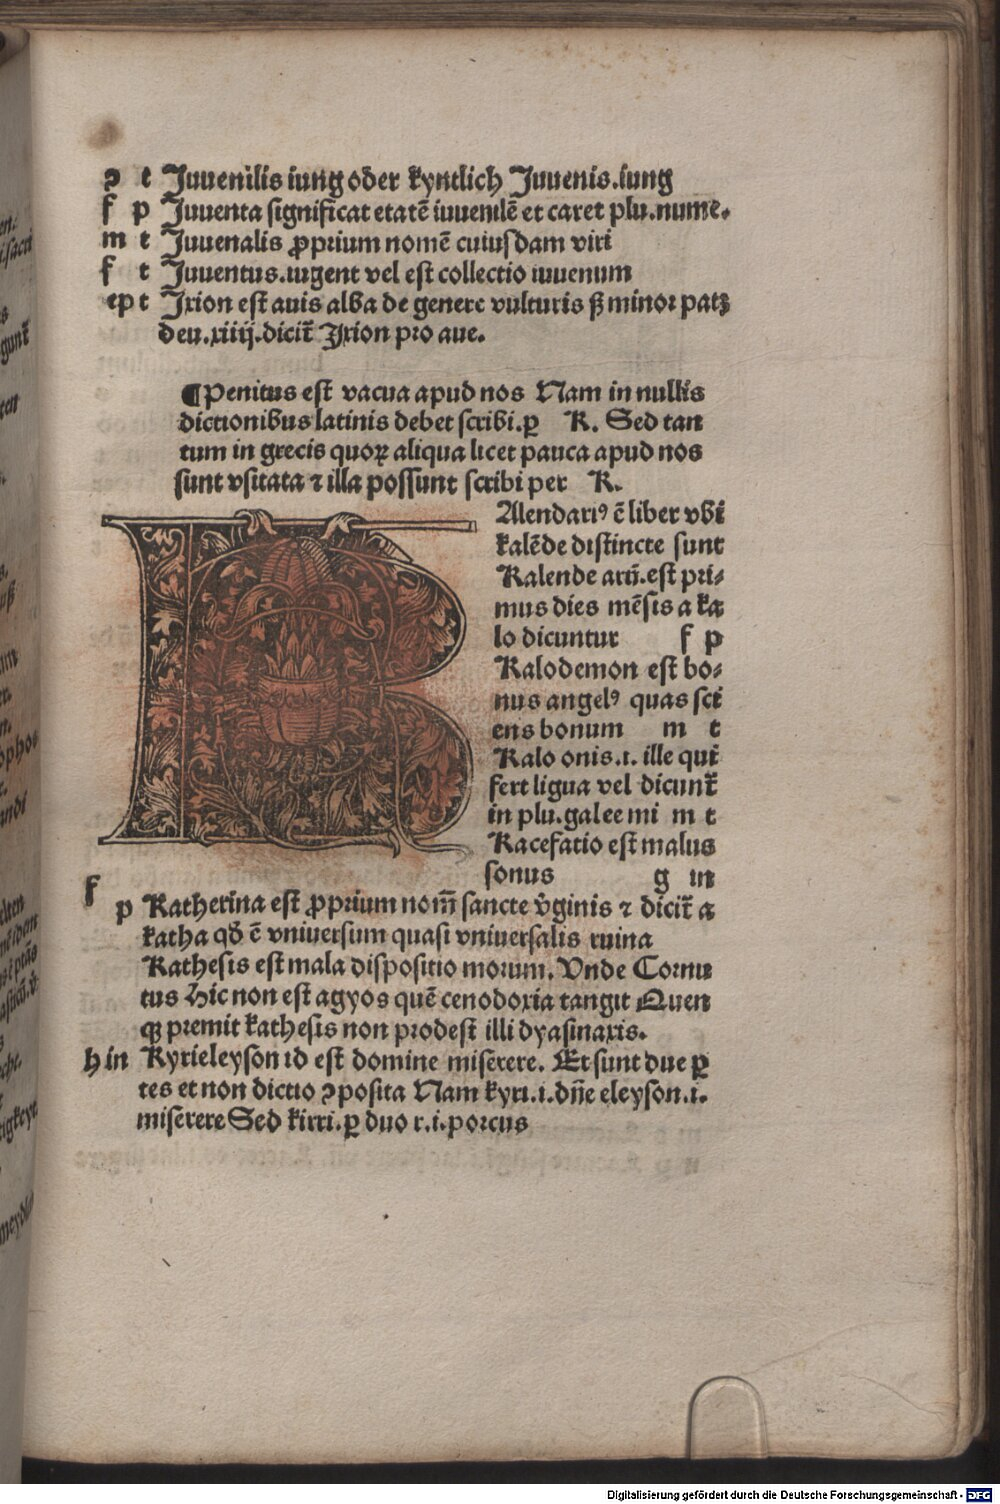 ꝯ t Juuenilis iung oder kyntlich Juuenis.iung
f p Juuenta significat etatē iuuenilē et caret plu.nume.
m t Juuenalis ꝓprium nomē cuiusdam viri
f t Juuentus.iugent vel est collectio iuuenum
ep t Jxion est auis alba de genere vulturis ß minor patꝫ
deu.xiiij.dicit̄ Jxion pro aue.
¶Penitus est vacua apud nos Nam in nullis
dictionibus latinis debet scribi.ꝑ K. Sed tan
tum in grecis quoꝝ aliqua licet pauca apud nos
sunt vsitata ⁊ illa possunt scribi per K.
KAlendariꝰ ē liber vbi
kalēde distincte sunt
Kalende arū.est pri⸗
mus dies mēsis a ka
lo dicuntur f p
Kalodemon est bo⸗
nus angelꝰ quas sci
ens bonum m t
Kalo onis.i. ille qui
fert ligua vel dicunt̄
in plu.galee mi m t
Kacefatio est malus
sonus g in
f p Katherina est ꝓprium nom̄ sancte v̓ginis ⁊ dicit̄ a
katha qđ ē vniuersum quasi vniuersalis ruina
Kathesis est mala dispositio morum. Vnde Cornu
tus Hic non est agyos quē cenodoxia tangit Quen
qꝫ premit kathesis non prodest illi dyasinaxis.
h in Kyrieleyson id est domine miserere. Et sunt due ꝑ
tes et non dictio ꝯposita Nam kyri.i.dn̄e eleyson.i.
miserere Sed kirri.ꝑ duo r.i.porcus
Digitalisierung gefördert durch die Deutsche Forschungsgemeinschaft - DFG